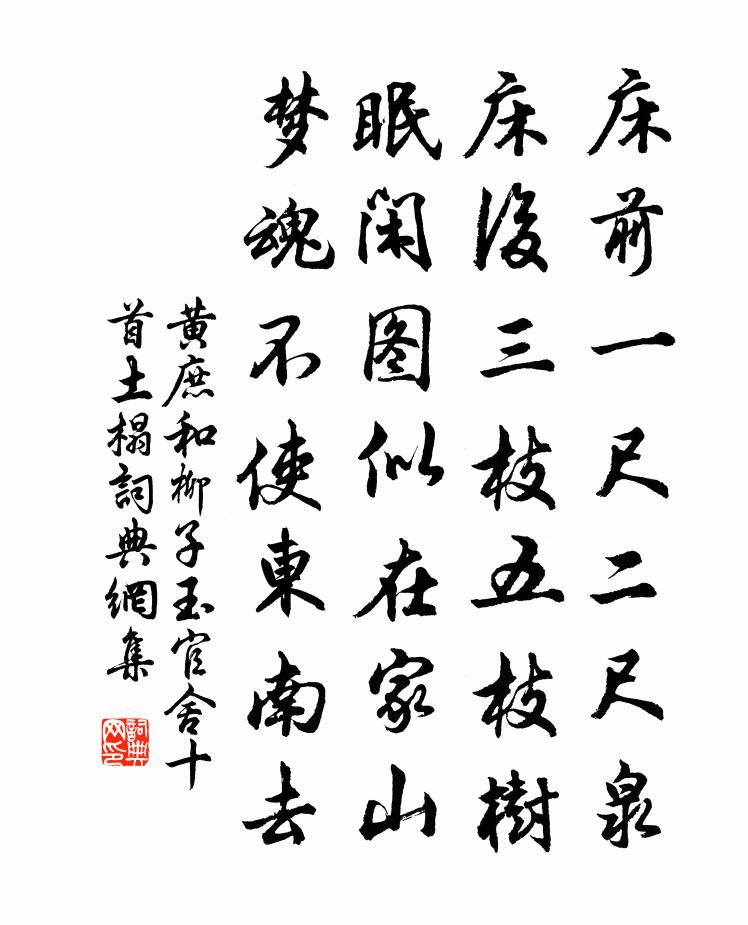 床前一尺二尺泉
床後三枝五枝樹
眠閑图似在家山
梦魂不使東南去
黄庶和柳子玉官舍十
首土榻詞典網集
詞典网印